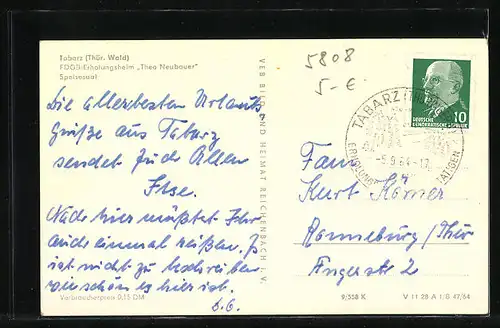 Tabarz (Thür. Wald)
FDGB-Erholungsheim „Theo Neubauer"
Speisesaal
5808
5-€
Die allerbesten Urlaubs
Grüße aus Tabarz
sendet Euch Allen
Ilse.
Nach hier müßtet Ihr
auch einmal reisen. Es
ist nicht zu beschreiben
wie schön es hier ist.
d.O.
Verbraucherpreis 0,15 DM
VEB BILD UND HEIMAT REICHENBACH I. V.
TABARZ (THÜR)
-5.9.64-17
10
DEUTSCHE
DEMOKRATISCHE REPUBLIK
Fam.
Kurt Körner
Ronneburg/Thür
Angerstr. 2
9/358 K
V 11 28 A 1/B 47/64